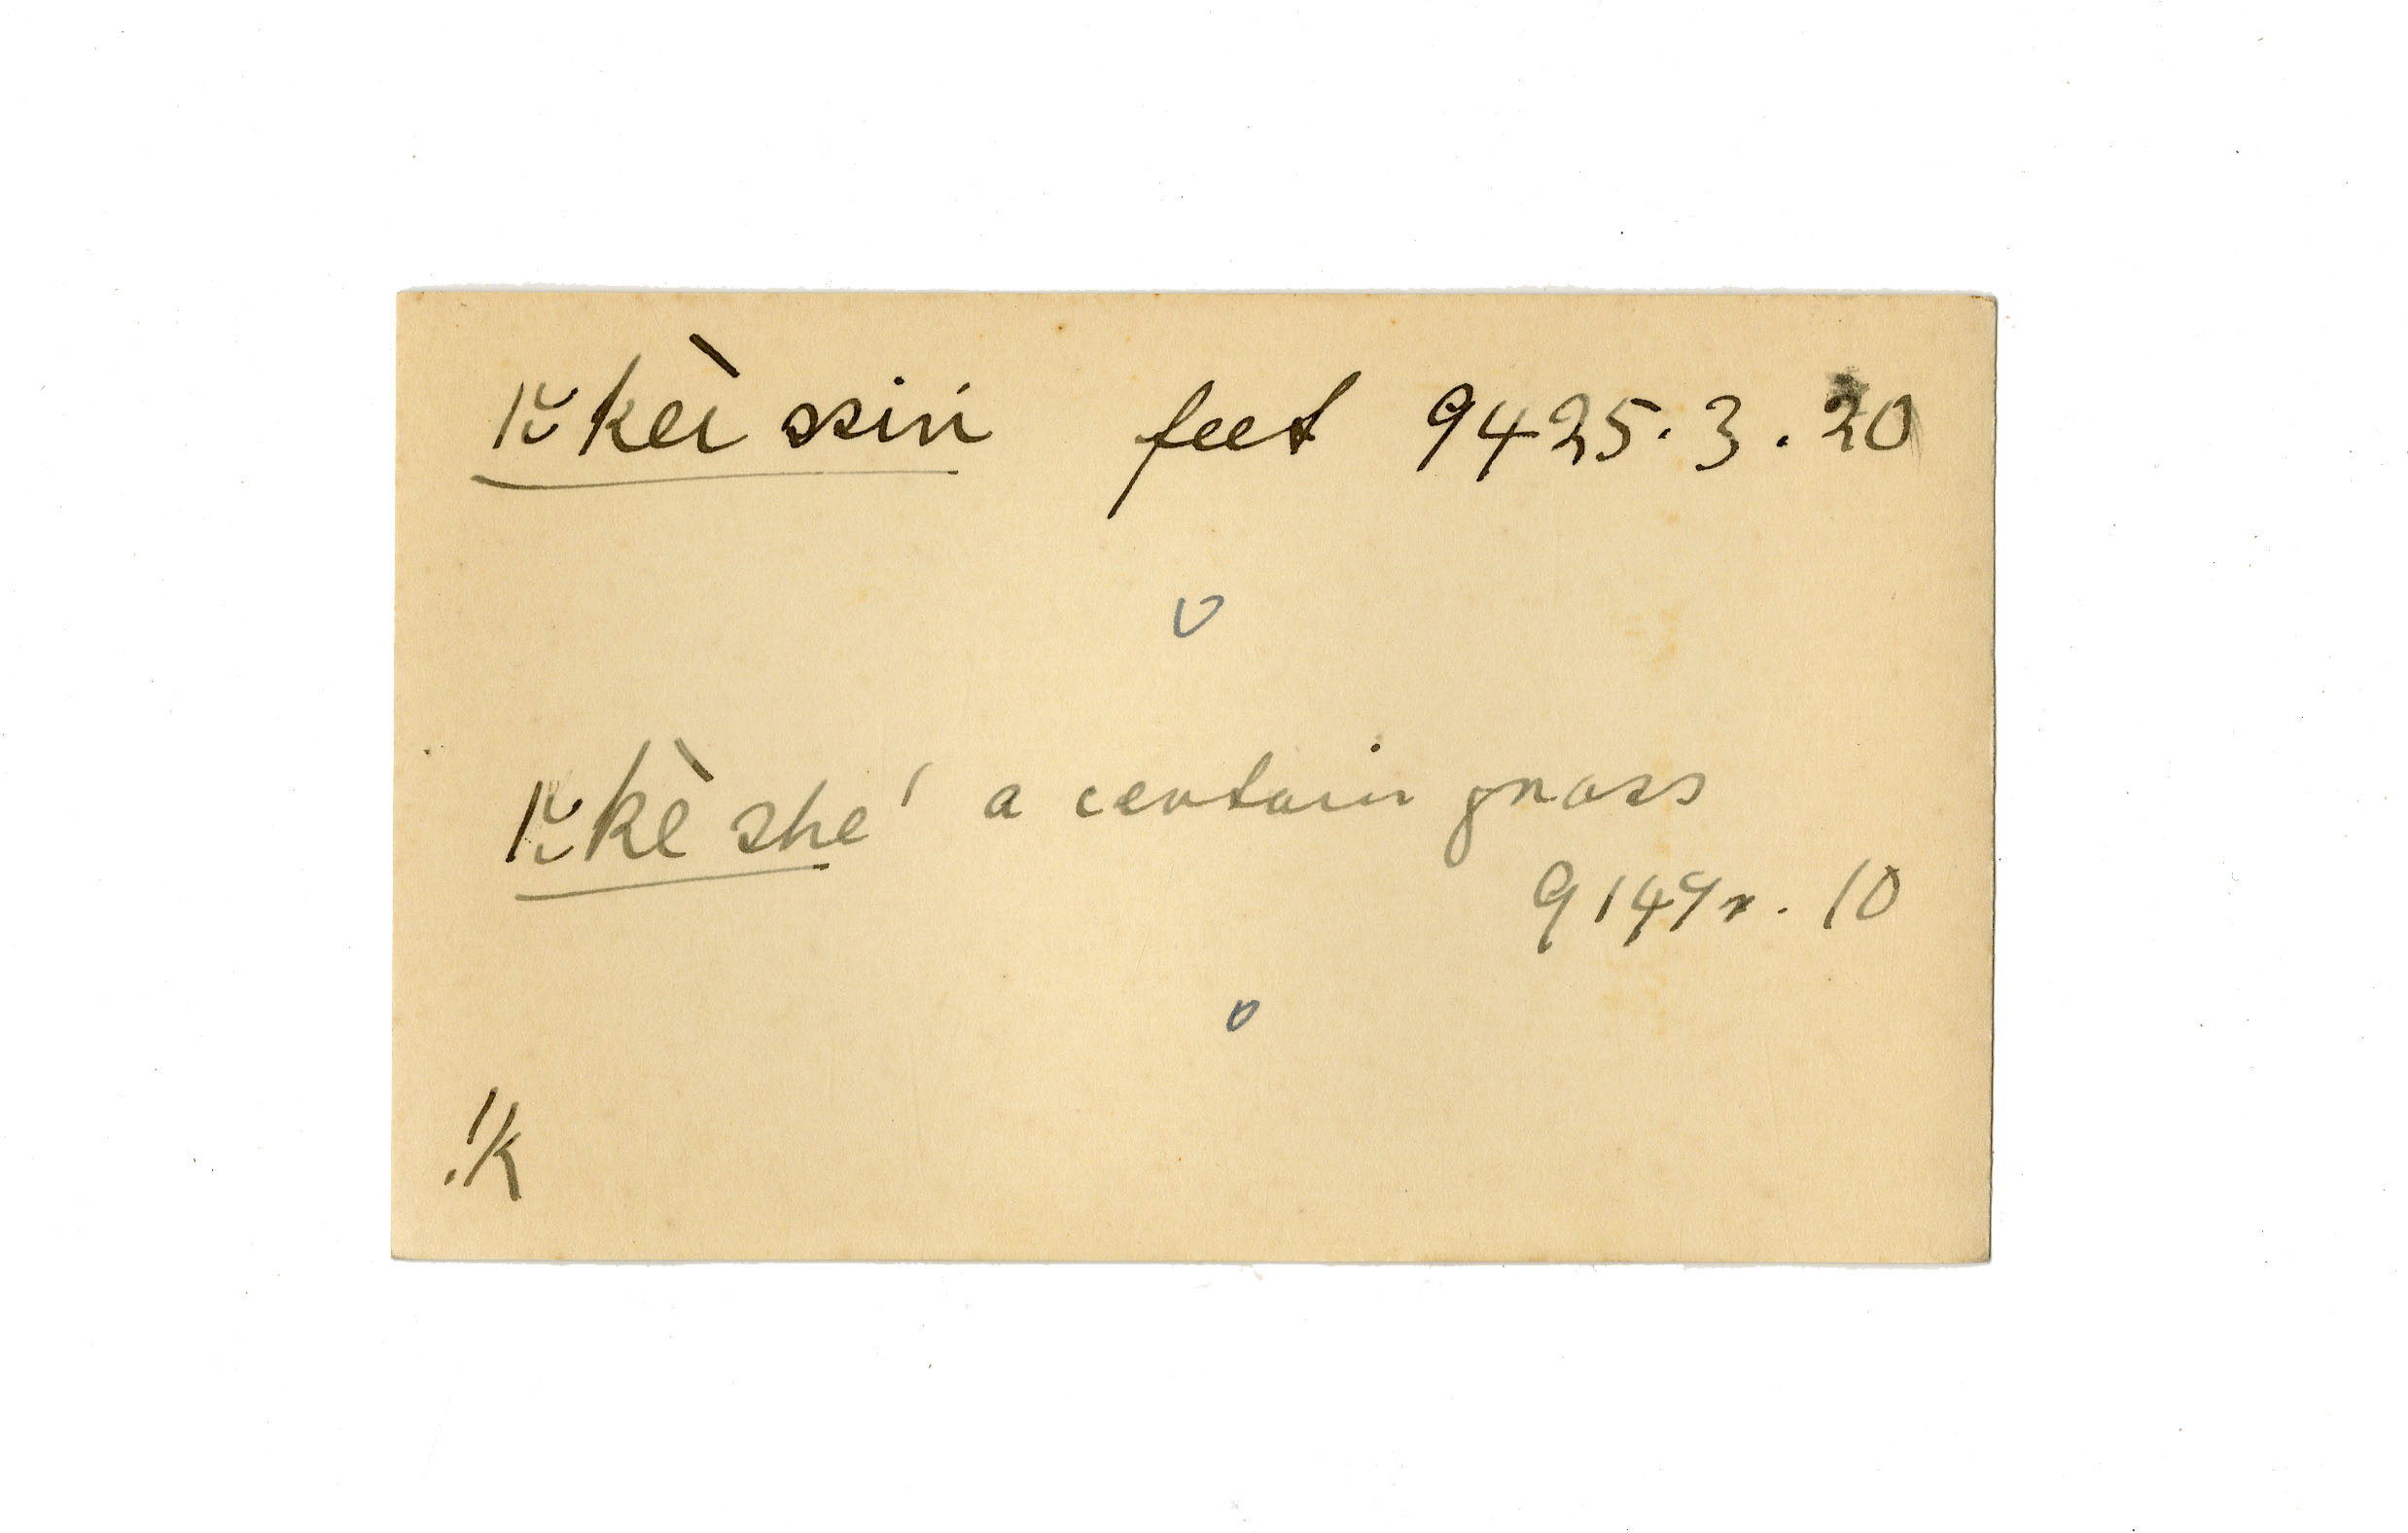 ǀ̆ kèi ssin feet 9425.3.20
ǀ̆ kè she' a certain grass
9149r. 10
!k